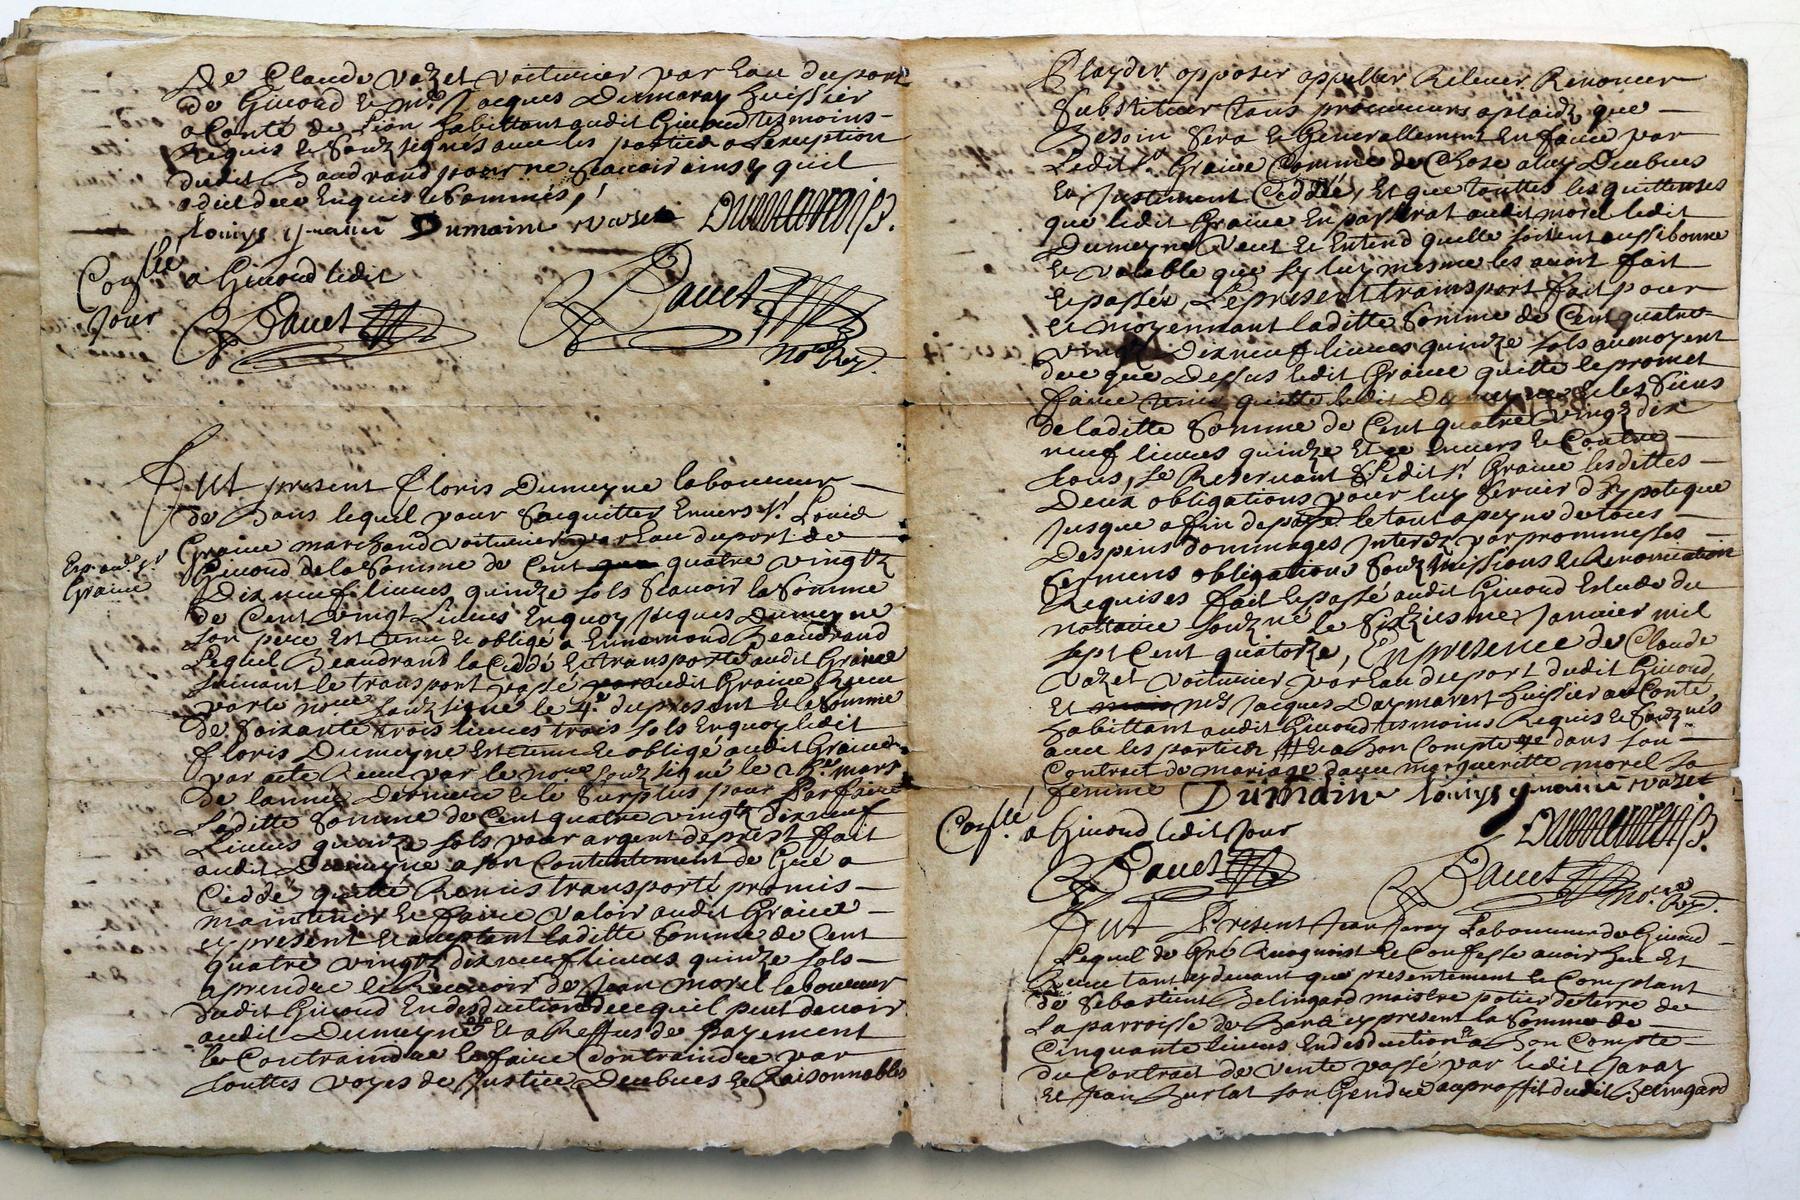 De Claude vazet voiturier par Eau du port
de Givord & mre Jacques Dumaray huissier
a Conté de Lion habittant audit Givord tesmoins
Requis & souzsignes avec les parties a l'exeption
dudit Baudrand pour ne scavoir ainsy quil
a dict de ce Enquis & sommés,
Louys Dumaine vazet
Con.lle a Givord ledit
Jour
Dauet Dauet
no.re Roy.
Fut present Floris Dumeyne laboureur
de Bans lequel pour Sacquitter Envers Sr. Louis
Graine marchand voiturier par Eau du port de
Givord de la Somme de Cent qua quatre vingtz
Exp. au d. Sr.
Graine
Dix neuf livres quinze sols scavoir la Somme
de Cent vingt Livres Enquoy Jacques Dumeyne
son pere Est tenu & obligé a Ennemond Beaudrand
Lequel Beaudrand la Ceddé & transporté audit Graine
suivant le transport passé par audit Graine Receu
par le no.re souzsigné le 4.e du present & la Somme
de Soixante trois livres trois sols Enquoy ledit
Floris Dumeyne Est tenu & obligé audit Graine
par acte Receu par le no.re souzsigné le mars
de lannée Derniere & le Surplus pour Parfaire
Laditte Somme de Cent quatre vingtz dix neuf
Livres quinze sols pour argent de prest fait
audit Dumeyne a son Contentement de Gré a
Ceddé quitté Remis transporté promis
maintenir & faire valoir audit Graine
cy present & acceptant laditte Somme de Cent
quatre vingtz dix neuf livres quinze sols
aprendre & Recevoir de Jean morel laboureur
dudit Givord En desduction de ce quil peut devoir
audit Dumeyne & a Reffus de payement
le Contraindre & faire Contraindre par
touttes voyes de Justice Deubues & Raisonnables
Playder opposer appeller Relever Renoncer
Substituer tous procureurs aplaidz que
Besoin Sera & Generallement En faire par
Ledit Sr. Graine Comme de Chose a luy Deubues
Et Justement Ceddée, Et que touttes les quittences
que ledit Graine En passerat audit morel ledit
Dumeyne Veut & Entend quelle soitent aussi bonne
& valable que sy luy mesme les avoit fait
& passée, Le present transport fait pour
& moyennant laditte Somme de Cent quatre
vingtz Dix neuf livres quinze sols au moyent
de ce que Dessus ledit Graine quitte & promet
faire tenir quitte ledit Dumeyne & les Siens
de laditte Somme de Cent quatre vingtz dix
neuf livres quinze Et ce Envers & Contre
tous, Se Reservant Ledit Sr. Graine lesdittes
Deux obligations pour luy Servir d'hypoteque
Jusque a fin de paye. le tout a peyne de tous
Despens dommages Interestz par prommesses
sermens obligations Souzmissions & Renonciation
Requises fait & passé audit Givord Estude du
nottaire souzné le Sixziesme Janvier mil
sept Cent quatorze, En presence de Claude
vazet voiturier par Eau du port dudit Givord
Et mre Jacques Daymarest huissier au Conté
habittant audit Givord tesmoins Requis & souz.nes
avec les parties & a Bon Compte de dans son
Contract de mariage davec margueritte morel sa
femme Dumaine Louys vazet
Con.llé a Givord ledit Jour
Dauet Dauet
no.re Roy.
Fut Present Jean Jaray Laboureur de Givord
Lequel de Gré Recognoist & Confesse avoir heu Et
Receu tant cydevant que presentement & Comptant
de Sebastient Belingard maistre potier de terre de
La parroisse de cy present la Somme de
Cinquante livres En desduction & a Bon Compte
du Contract de vente passé par ledit Jaray
Et Jean Burlat son Gendre au proffit dudit Belingard